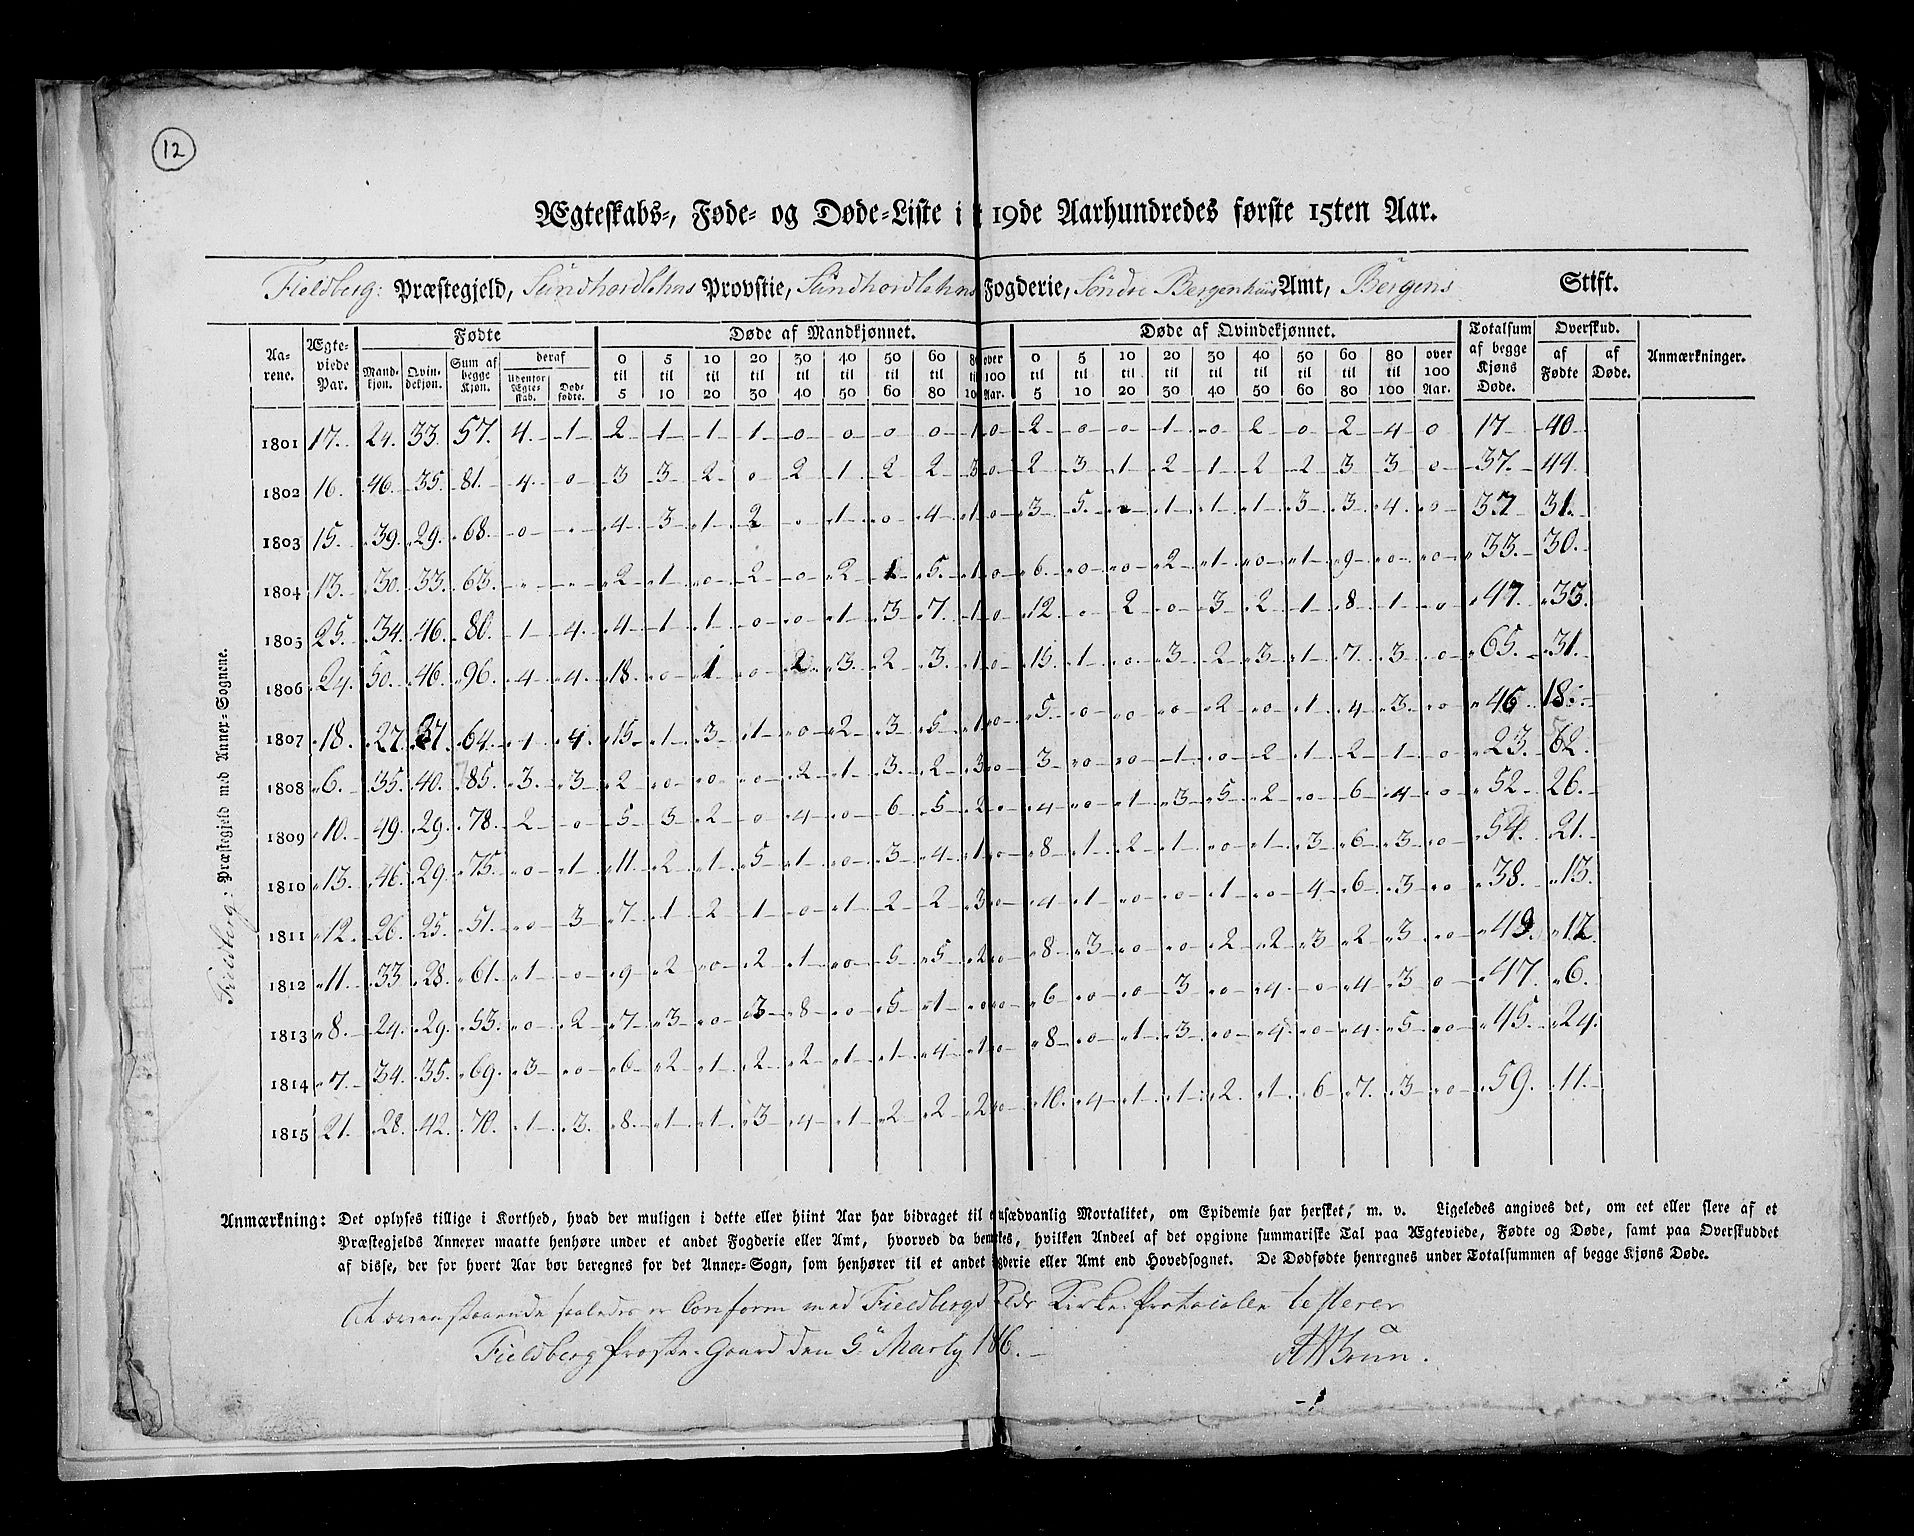 12
Ægteskabs-, Føde- og Døde-Liste i 19de Aarhundredes første 15ten Aar.
Fieldberg: Præstegjeld, Sundhordlehns Provstie, Sundhordlehns Fogderie, Søndre Bergenhuus Amt, Bergens Stift.
Aarene. Ægteviede Par. Fødte Døde af Mandkjønnet. Døde af Qvindekjønnet. Totalsum af begge Kjøns Døde. Overskud. Anmærkninger.
Mandkjøn. Qvindekjøn. Sum af begge Kjøn. deraf Udenfor Ægteskab. Dødfødte. af Fødte af Døde.
0 til 5 5 til 10 10 til 20 20 til 30 30 til 40 40 til 50 50 til 60 60 til 80 over 100 Aar. 0 til 5 5 til 10 10 til 20 20 til 30 30 til 40 40 til 50 50 til 60 60 til 80 80 til 100 over 100 Aar.
Fieldberg: Præstegjeld med Annex-Sognene.
1801 17. 24. 33. 57. 4. 1 2 1 1 1 0 0 0 0 1 0 2 0 0 1 0 2 0 2 4 0 17 40
1802 16. 46. 35. 81. 4. 0 3 3 2 0 2 1 2 2 3 0 2 3 1 2 1 2 2 3 3 0 37. 44.
1803 15. 39. 29. 68. 0 " 4 3 1 2 0 1 0 4 1 0 3 5. 2 1 1 1 3 3 4 0 37 31.
1804 13. 30. 33. 63. " " 2 1 0 2 0 2 1 5. 1 0 6. 0 0 2 1 0 1 9 0 0 33. 30.
1805 25. 34. 46. 80. 1 4. 4 1 1 0 0 1 3 7. 1 0 12. 0 2 0 3 2 1 8 1 0 47. 33.
1806 24. 50. 46. 96. 4 4. 18. 0 1 0 2 3 2 3. 1 0 15. 1 0 3 2 3 1 7. 3 0 65. 31.
1807 18. 27. 37. 64. 1 4. 15 1 3 1 0 2 3 5 1 0 5 0 0 0 2 0 1 4 3 0 46 18.
1808 6. 35. 40. 85. 3. 3 2 0 0 0 2 1 3 2 3 0 3 0 0 1 0 2 1 2 1 0 23. 62.
1809 10. 49. 29. 78. 2 0 5 3 2 0 4 0 6 5 2 0 4 0 1 3 5 2 0 6 4 0 52. 26.
1810 13. 46. 29. 75. 0 1 11. 2 1 5 1 0 3 4 1 0 8 1 2 1 0 1 3 6. 3 0 54. 21.
1811 12. 26. 25. 51. 0 3 7 1 2 1 0 1 2 2 3 0 4 1 0 0 1 0 4 6. 3 0 38. 13.
1812 11. 33 28. 61. 1 0 9 2 0 2 1 0 5 5 2 0 8 3 0 0 2 2 3 2 3 0 49. 12.
1813 8. 24. 29. 53. 0 2 7 3 0 3 8 0 5 1 0 0 6 0 0 3 0 4. 0 4 3 0 47. 6.
1814 7. 34. 35. 69. 3 0 6 2 1 2 2 1 1 4 1 0 8 0 1 3 0 4. 0 4. 5 0 45. 24.
1815 21. 28. 42. 70. 1 3. 8. 1 1 3 4 1 2 2 2 0 10. 4 1 1 2. 1 6 7. 3 0 59. 11.
Anmærkning: Det oplyses tillige i Korthed, hvad der muligen i dette eller hiint Aar har bidraget til usædvanlig Mortalitet, om Epidemie har hersket, m. v. Ligeledes angives det, om eet eller flere af et
Præstegjelds Annexer maatte henhøre under et andet Fogderie eller Amt, hvorved da bemærkes, hvilken Andeel af det opgivne summariske Tal paa Ægteviede, Fødte og Døde, samt paa Overskuddet
af disse, der for hvert Aar bør beregnes for det Annex-Sogn, som henhører til et andet Fogderie eller Amt end Hovedsognet. De Dødfødte henregnes under Totalsummen af begge Kjøns Døde.
At ovenstaaende saaledes er Conform med Fieldbergs Kirke-Protocoller testerer
Fieldberg Præste-Gaard den 5te Marty 1816.
Brun.